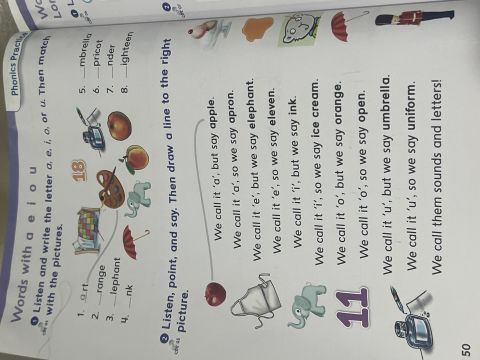 Phonics Practice
Words with a e i o u
1 Listen and write the letter a, e, i, o, or u. Then match
with the pictures.
1. a rt
2. __range
3. __lephant
4. __nk
5. __mbrella
6. __pricot
7. __nder
8. __ighteen
18
2 Listen, point, and say. Then draw a line to the right
picture.
We call it 'a', but say apple.
We call it 'a', so we say apron.
We call it 'e', but we say elephant.
We call it 'e', so we say eleven.
We call it 'i', but we say ink.
We call it 'i', so we say ice cream.
We call it 'o', but we say orange.
We call it 'o', so we say open.
We call it 'u', but we say umbrella.
We call it 'u', so we say uniform.
We call them sounds and letters!
11
50